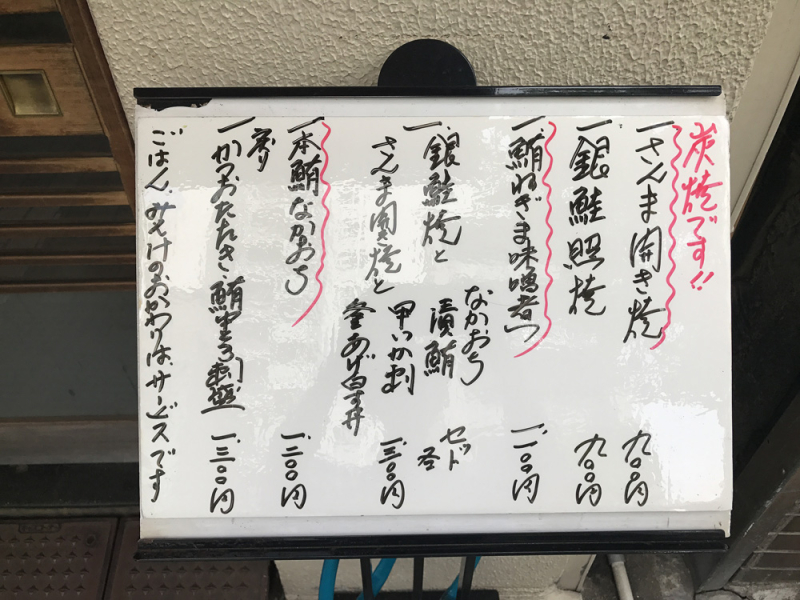 炭焼です!!
一さんま開き焼 九〇〇円
一銀鮭照焼 九〇〇円
一鮪ねぎま味噌煮つ 一、一〇〇円
一銀鮭焼と
さんま開き焼と
なかおち
漬鮪
甲いか刺
釜あげ白す丼
セット
各
一、三〇〇円
一本鮪なかおち 一、二〇〇円
戻り
一かつおたたき・鮪中とろ刺盛 一、三〇〇円
ごはん、みそ汁のおかわりは、サービスです